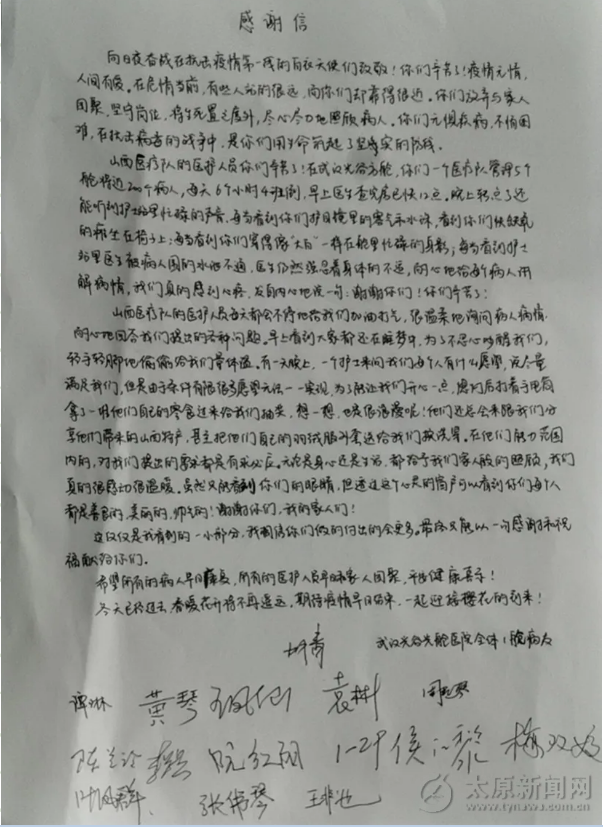 感谢信
向日夜奋战在抗击疫情第一线的白衣天使们致敬！你们辛苦了！疫情无情，
人间有爱。在危情当前，有些人站的很远，而你们却靠得很近。你们放弃与家人
团聚，坚守岗位，将生死置之度外，尽心尽力地照顾病人。你们无惧疾病，不怕困
难，在抗击病毒的战争中，是你们用生命筑起了坚实的防线。
山西医疗队的医护人员你们辛苦了！在武汉光谷方舱，你们一个医疗队管理5个
舱将近200个病人，每天6个小时4班倒，早上医生查完房已快12点。晚上转点了还
能听到护士站里忙碌的声音，每当看到你们护目镜里的雾气和水珠，看到你们
的瘫坐在椅子上；每当看到你们穿得像“大白”一样在舱里忙碌的身影；每当看到护士
站里医生被病人围的水泄不通，医生仍然强忍着身体的不适，耐心地给每个病人讲
解病情，我们真的感到心疼，发自内心地说一句：谢谢你们！你们辛苦了！
山西医疗队的医护人员每天都会不停地给我们加油打气，很温柔地询问病人病情，
耐心地回答我们提出的各种问题。早上看到大家都还在睡梦中，为了不忍心吵醒我们，
轻手轻脚地偷偷给我们量体温。有一天晚上，一个护士来问我们每个人有什么愿望，说尽量
满足我们，但是由于条件有限很多愿望无法一一实现，为了能让我们开心一点，熄灯后打着手电筒
拿了一堆他们自己的零食过来给我们抽奖，想一想，也是很浪漫呢！他们还总会来跟我们分
享他们带来的山西特产，甚至把他们自己的羽绒服外套送给我们披洗澡。在他们能力范围
内的，对我们提出的需求都是有求必应。无论是身心还是生活，都给予我们家人般的照顾，我们
真的很感动很温暖。虽然只能看到你们的眼睛，但透过这个心灵的窗户可以看到你们每个人
都是善良的、美丽的、帅气的！谢谢你们，我的家人们！
这仅仅是我看到的一小部分，我相信你们做的付出的会更多。带疼只能以一句感谢和祝
福献给你们。
希望所有的病人早日康复，所有的医护人员早日和家人团聚，平安健康喜乐！
冬天已经过去，春暖花开将不再遥远，期待疫情早日结束，一起迎接樱花的到来！
武汉光谷方舱医院全体1舱病友
谭琳 黄琴 袁彬
阮红丽 1-29侯 梅双
张伟琴
太原新闻网
www.tynews.com.cn